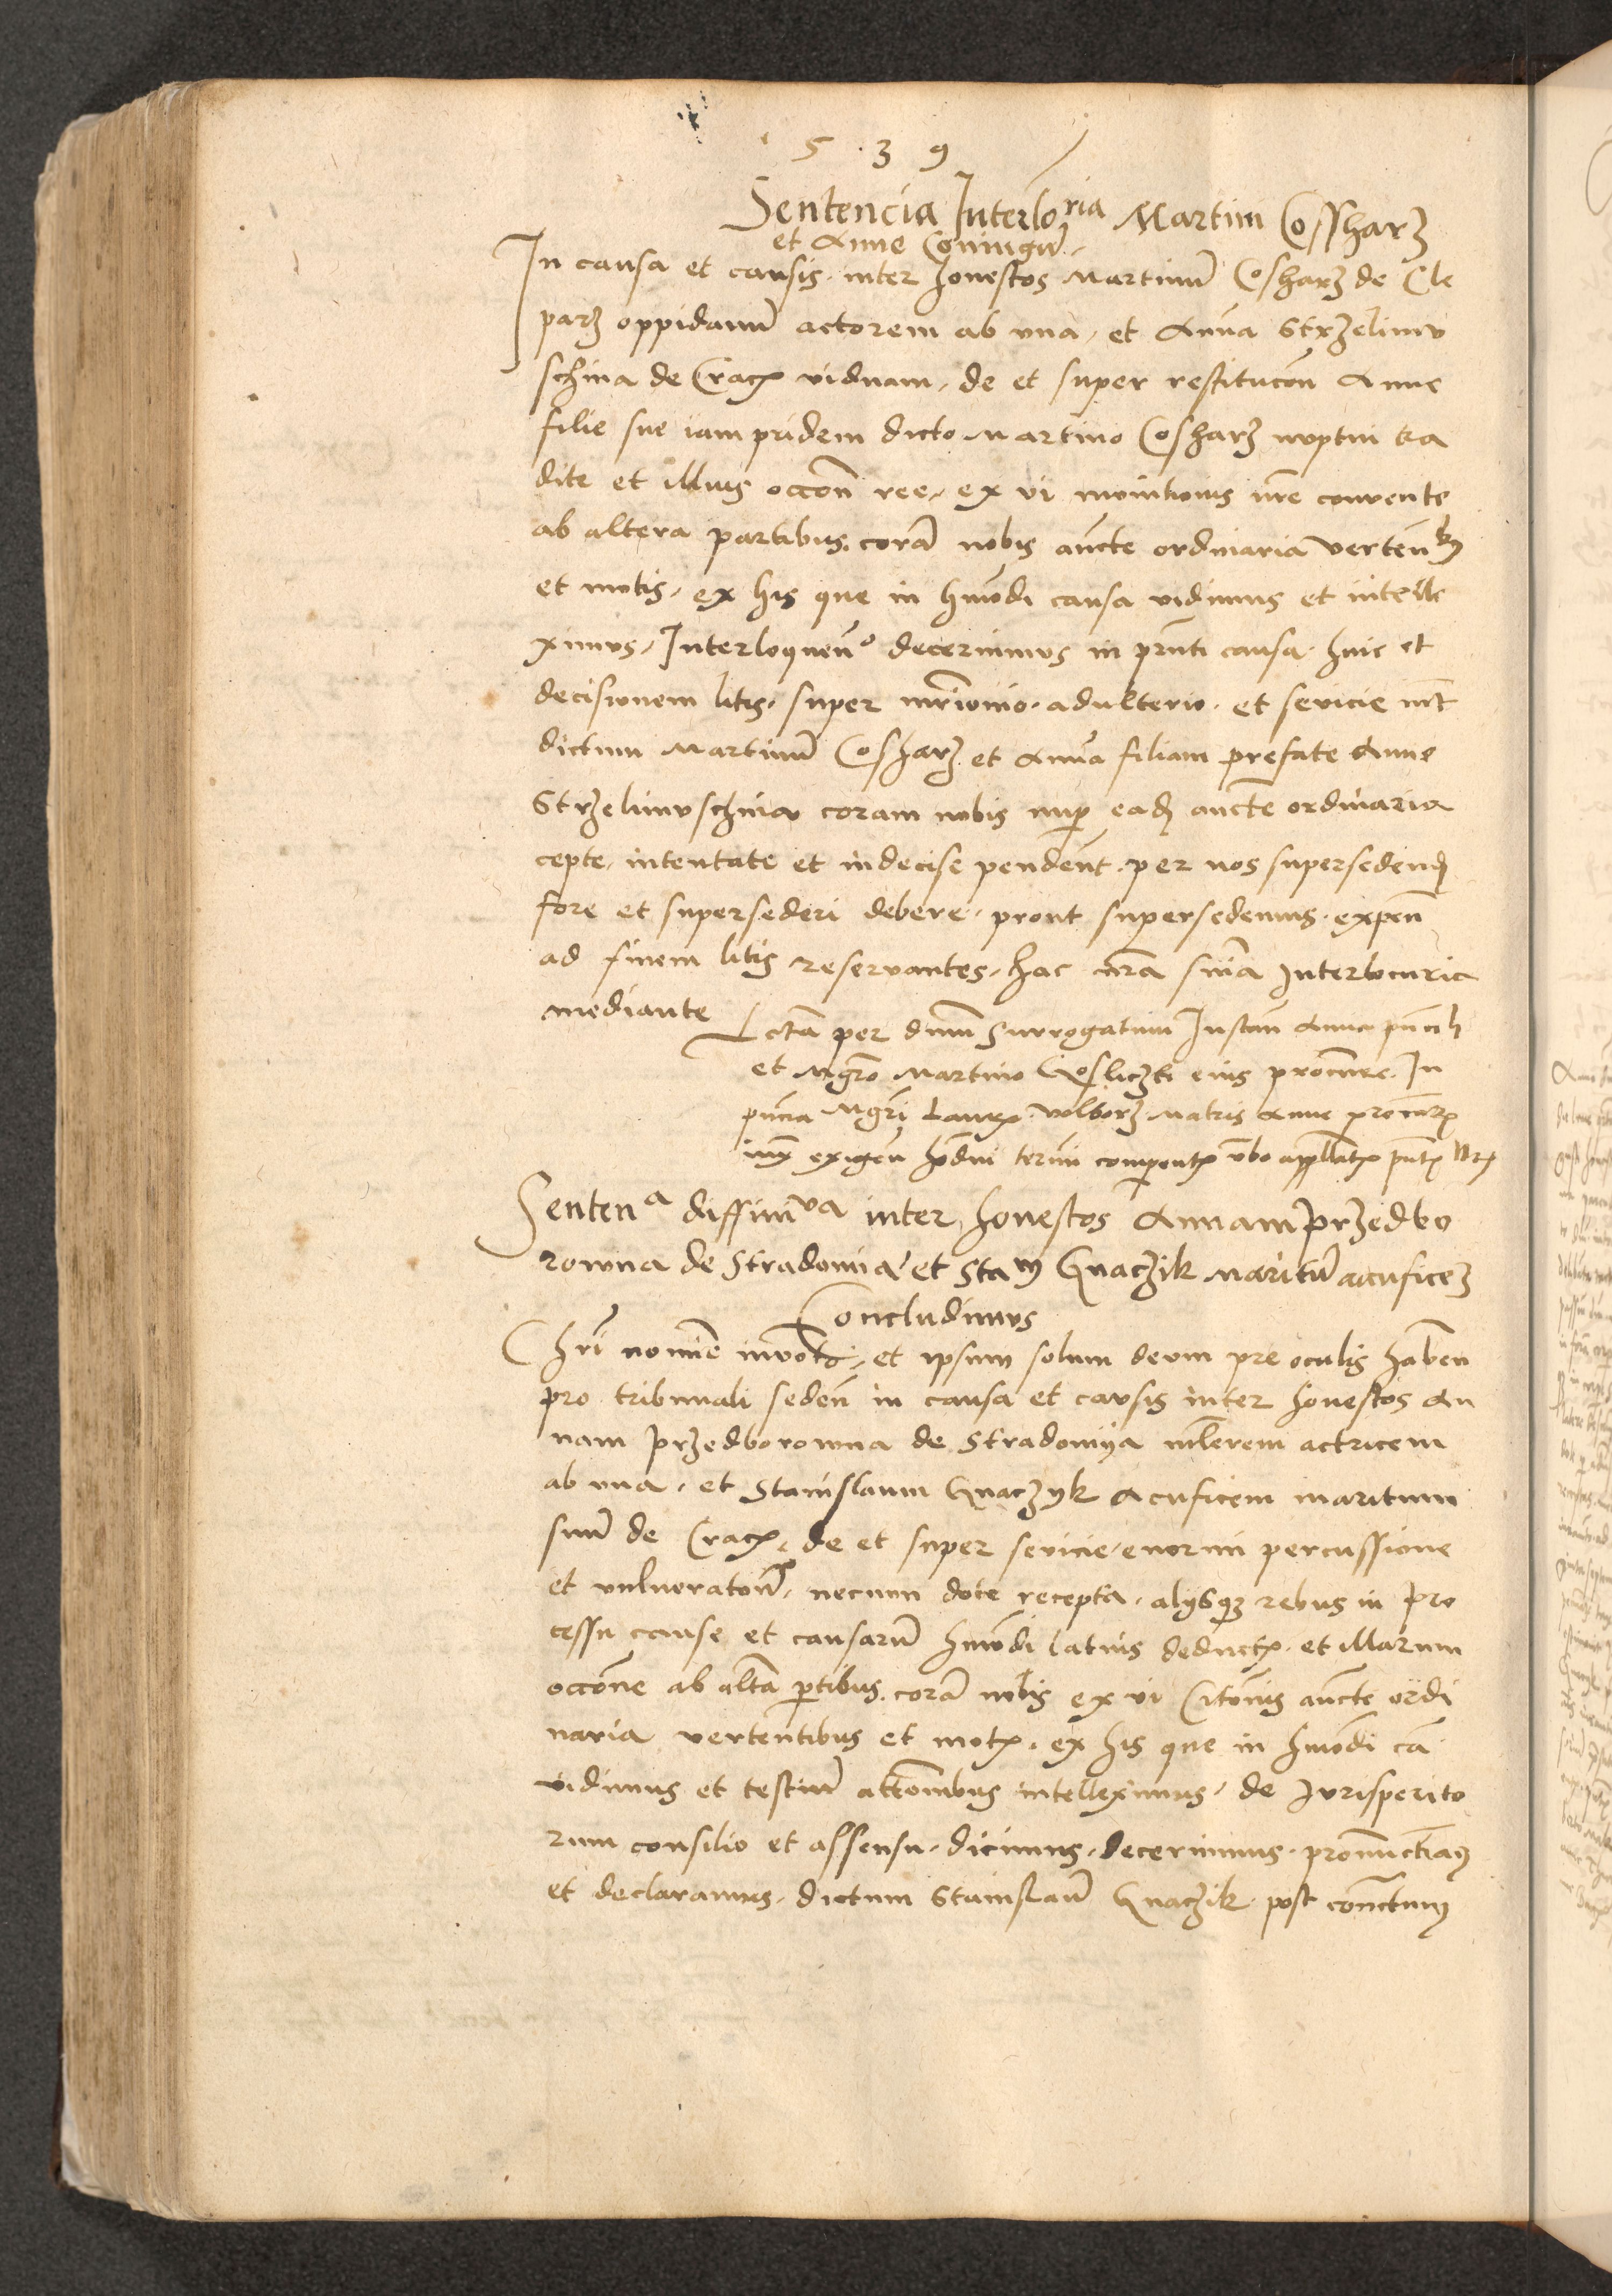 5 3 9
Sentencia Interlo^ria Martini Cossharz
et Anne Coniugu
In causa et causis inter honestos Martinu Cosharz de Cle
parz oppidanu actorem ab una, et Anna Strzelimu
schina de Crac viduam, de et super restitucon Anne
filie sue iampridem dicto Martino Cosharz nuptui tra
dite et illius occon ree, ex vi monitionis nre convente
ab altera partibus cora nobis aucte ordinaria verten
et motis, ex his que in hmodi causa vidimus et intelle
ximus, Interloquen° decernimus in prnti causa huic et
decisionem litis, super mrimonio adulterio et sevicie int
dictum Martinu Cosharz et Anna filiam prefate Anne
Strzelimuschina coram nobis nup ead aucte ordinaria
cepte, intentate et indecise pendent per nos supersedend
fore et supersederi debere, prout supersedemus expen
ad finem litis reservantes, hac nra snia Interlocuria
mediante
Lcta per dnm Surrogatum Instan Anna
et Mgro Martino Goslicski eius procure In
pncia Mgri Laur Wolborz Matris Anne procur
exigen hodni termi comparent vbo appellat
Senten^a diffini^va inter honestos Annam Przedbo
rowna de Stradomia et Sta^m Gnaczik Maritu acuficez
Concludimus
Chri nomine invoto, et ipsum solum deum pre oculis haben
pro tribunali seden in causa et causis inter honestos An
nam Przedborowna de Stradomya mlerem actricem
ab una, et Stanislaum Gnaczyk Acuficem maritum
suu de Crac, de et super sevicie, enormi percussione
et vulneraton, necnon dote recepta, alysq rebus in pro
cessu cause et causaru hmodi latius deduct et illarum
occone ab alta ptibus cora nobis ex vi Citonis aucte ordi
naria vertentibus et mot, ex his que in hmodi ca
vidimus et testiu attonibus intelleximus, de Jurisperito
rum consilio et assensu, dicimus, decernimus, pronunctiam
et declaramus, dictum Stanislau Gnaczik post contractum